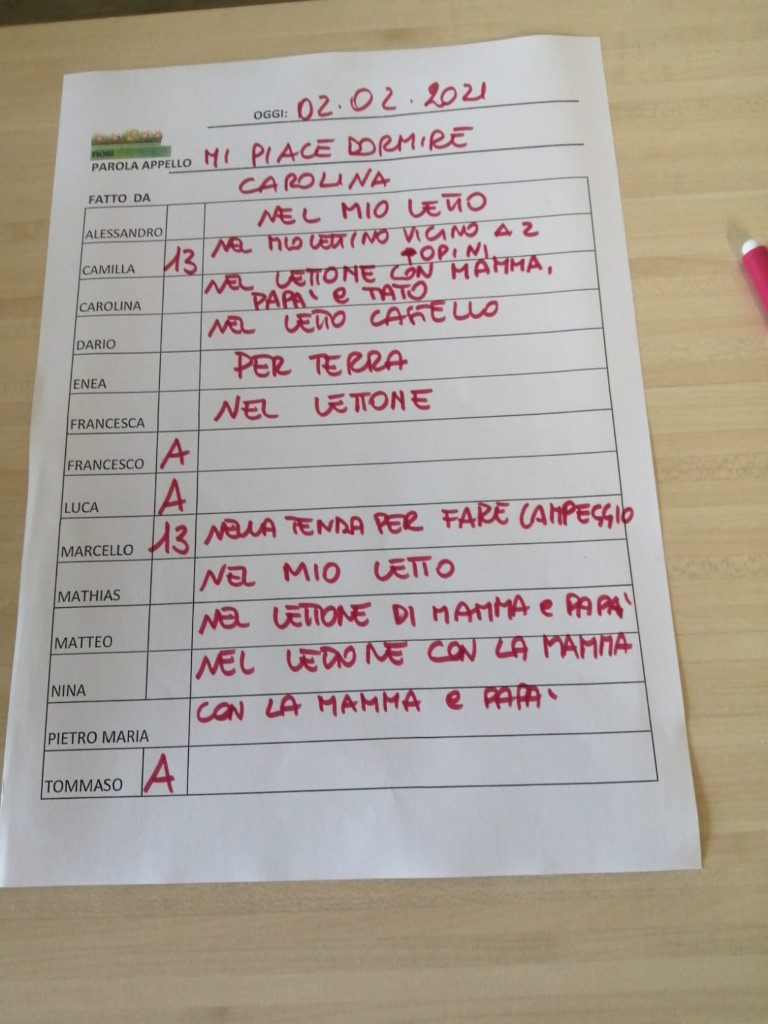 OGGI: 02.02.2021
FIORI
PAROLA APPELLO MI PIACE DORMIRE
FATTO DA CAROLINA
ALESSANDRO NEL MIO LETTO
CAMILLA 13 NEL MIO LETTINO VICINO A 2
TOPINI
CAROLINA NEL LETTONE CON MAMMA,
PAPA' e TATO
DARIO NEL LETTO CASTELLO
ENEA PER TERRA
FRANCESCA NEL LETTONE
FRANCESCO A
LUCA A
MARCELLO 13 NELLA TENDA PER FARE CAMPEGGIO
MATHIAS NEL MIO LETTO
MATTEO NEL LETTONE DI MAMMA e PAPA'
NINA NEL LETTONE CON LA MAMMA
PIETRO MARIA CON LA MAMMA e PAPA'
TOMMASO A